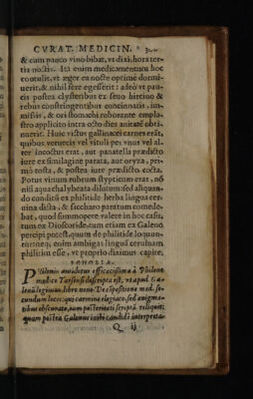 CVRAT. MEDICIN.
& cum pauco vino bibat, vt dixi, hora ter
tia noctis. Ita enim medicamentum hoc
contulit, vt æger ea nocte optime dormi
uerit, & nihil fere egesserit: adeo vt pau
cis postea clysteribus ex seuo hircino &
rebus constringentibus concinnatis, im
missis, & ori stomachi roborante empla
stro applicito intra octo dies
nuerit. Huic victus gallinaceæ carnes erāt,
quibus veruecis vel vituli pes vnus vel al
ter incoctus erat, aut panatella prædicto
iure ex similagine parata, aut oryza, pri
mò tosta, & postea iure prædicto cocta.
Potus vinum rubrum stypticum erat, no
nisi aqua chalybeata dilutum: sed aliquan
do conditū ex philitide herba lingua cer
uina dicta, & saccharo paratum comede
bat, quod summopere valere in hoc casu,
tum ex Dioscoride tum etiam ex Galeno
percipi potest, quum de philitide loquan
tur: neq; enim ambigas linguã ceruinam
philitim esse, vt proprio diximus capite.
SCHOLIA.
PHilonin antidotus efficacissima à Philone
medico Tarsensi descripta est, vt apud Ga
lenū legimus, libro nono De cōpositione med. se
cundum locos: qui carmine elegiaco, sed ænigma
tibus obscurato, eam posteritati scriptā reliquit:
quam postea Galenus
Q ij